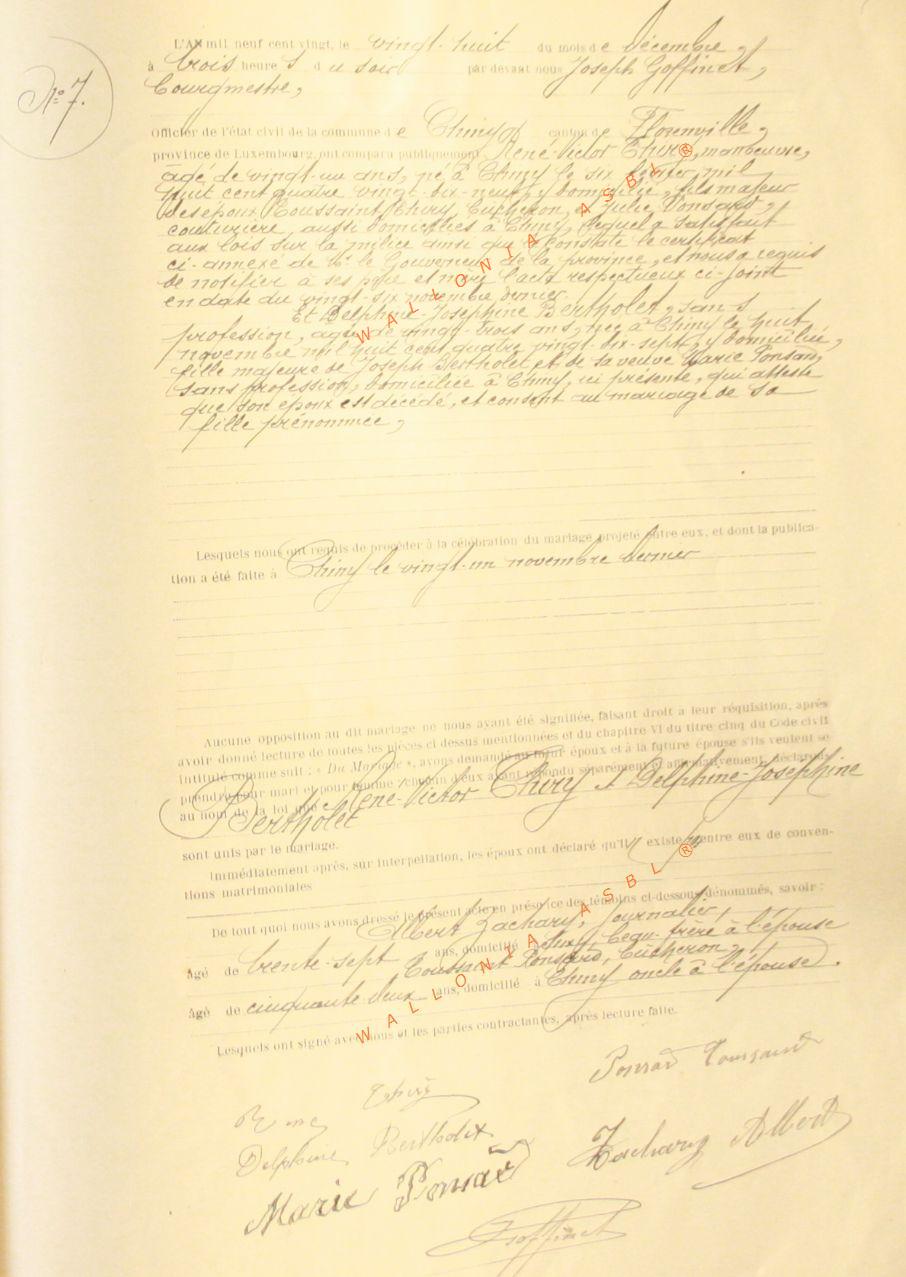 N° 7.
L'AN mil neuf cent vingt, le vingt-huit du mois de décembre,
à trois heures du soir par devant nous Joseph Goffinet,
Bourgmestre,
Officier de l'état civil de la commune de Chiny canton de Florenville,
province de Luxembourg, ont comparu publiquement René-Victor Thiry, manœuvre,
âgé de vingt-un ans, né à Chiny le six février mil
huit cent quatre vingt-dix-neuf, y domicilié, fils majeur
des époux Toussaint Thiry, bûcheron, et Julie Ponsard,
couturière, aussi domiciliés à Chiny, lequel a satisfait
aux lois sur la milice ainsi que le constate le certificat
ci-annexé de Mr le Gouverneur de la province, et nous a requis
de notifier à ses père et mère l'acte respectueux ci-joint
en date du vingt-six novembre dernier.
Et Delphine-Josephine Bertholet, sans
profession, âgée de vingt-trois ans, née à Chiny le huit
novembre mil huit cent quatre vingt-dix-sept, y domiciliée,
fille majeure de Joseph Bertholet et de sa veuve Marie Ponsard,
sans profession, domiciliée à Chiny, ici présente, qui atteste
que son époux est décédé, et consent au mariage de sa
fille prénommée,
Lesquels nous ont requis de procéder à la célébration du mariage projeté entre eux, et dont la publica-
tion a été faite à Chiny le vingt-un novembre dernier
Aucune opposition au dit mariage ne nous ayant été signifiée, faisant droit à leur réquisition, après
avoir donné lecture de toutes les pièces ci dessus mentionnées et du chapitre VI du titre cinq du Code civil
intitulé comme suit : « Du Mariage », avons demandé au futur époux et à la future épouse s'ils veulent se
prendre pour mari et pour femme ; chacun d'eux ayant répondu séparément et affirmativement, déclarons
au nom de la loi que René-Victor Thiry et Delphine-Josephine
Bertholet
sont unis par le mariage.
Immédiatement après, sur interpellation, les époux ont déclaré qu'il n'existe entre eux de conven-
tions matrimoniales
De tout quoi nous avons dressé le présent acte en présence des témoins ci-dessous dénommés, savoir :
Albert Zachary, journalier,
âgé de trente-sept ans, domicilié à beau-frère à l'épouse
Toussaint Ponsard, bûcheron,
âgé de cinquante deux ans, domicilié à Chiny oncle à l'épouse.
Lesquels ont signé avec nous et les parties contractantes, après lecture faite.
Ponsard Toussaint
René Thiry
Delphine Bertholet
Zachary Albert
Marie Ponsard
Goffinet
WALLONIA ASBL ®
WALLONIA ASBL ®